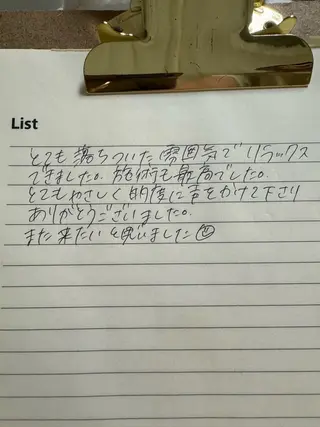 List
とても落ちついた雰囲気でリラックス
できました。施術も最高でした。
とてもやさしく的度に声をかけて下さり
ありがとうございました。
また来たいと思いました